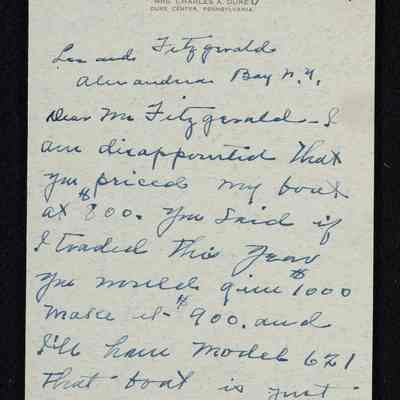 MRS. CHARLES A. DUKE
DUKE CENTER, PENNSYLVANIA
Fitzgerald
Alexandria Bay N.Y.
Dear Mr Fitzgerald - I
am disappointed that
you priced my boat
at $800. You said if
I traded this year
you would give $1000
make it $900. and
I'll have model 621
that boat is just